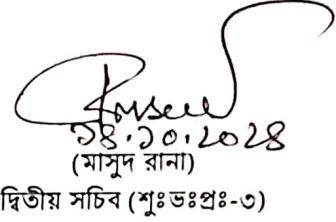 ১৪.১০.২০২৪
(মাসুদ রানা)
দ্বিতীয় সচিব (শুঃভঃপ্রঃ-৩)